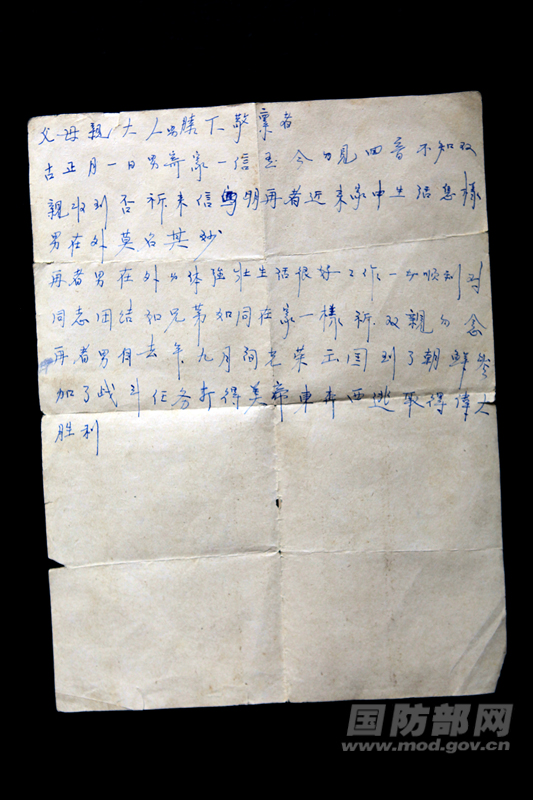 父母親大人膝下敬禀者
古正月一日男寄家一信至今勿見回音不知双
親收到否祈来信明再者近来家中生活怎樣
男在外莫名其妙
再者男在外身体強壮生活很好工作一切順利对
同志团结如兄弟如同在家一様祈双親勿念
再者男自去年九月间光荣出国到了朝鮮參
加了战斗任务打得美帝東奔西逃取得偉大
胜利
国防部网
www.mod.gov.cn